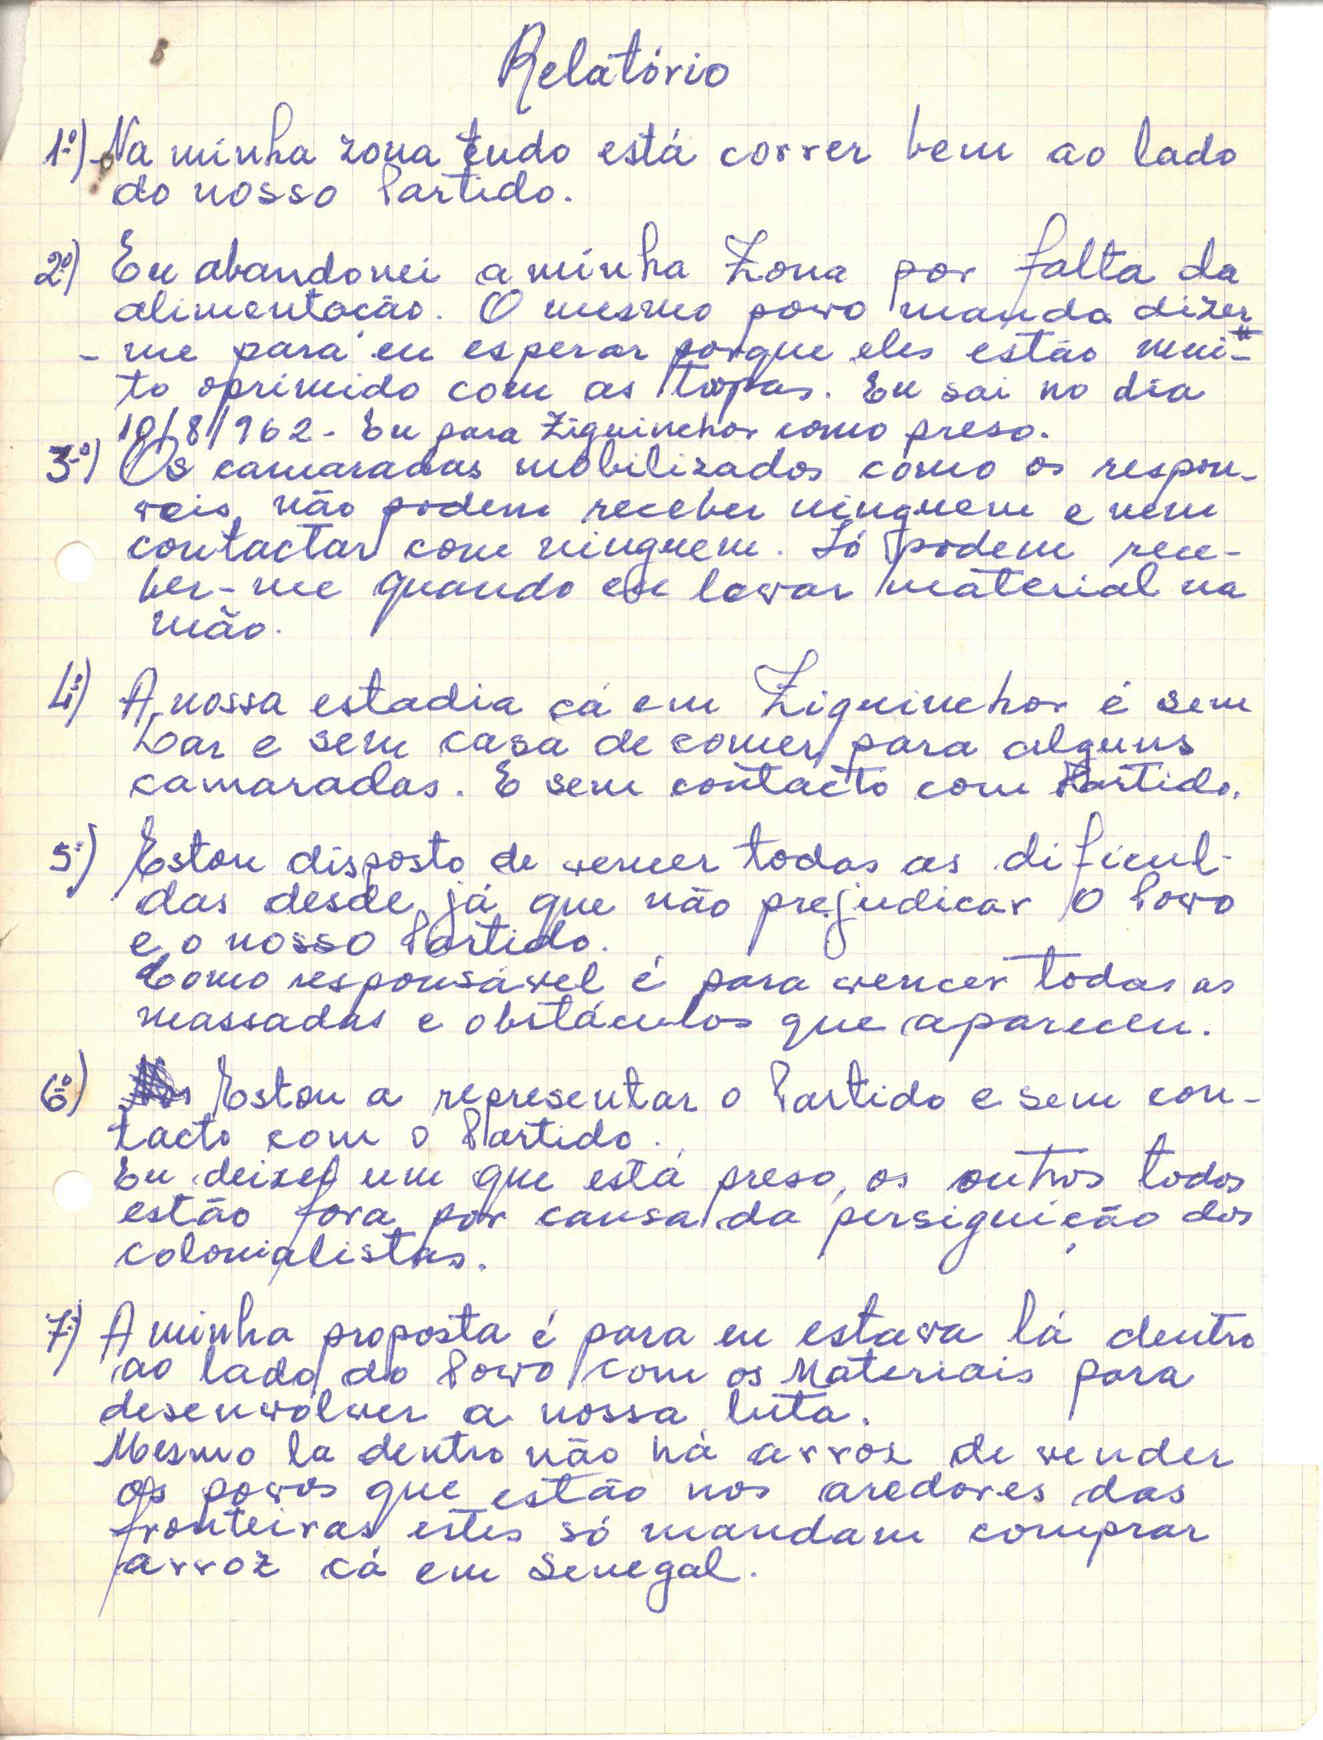 Relatório
1º) Na minha zona tudo está correr bem ao lado
do nosso Partido.
2º) Eu abandonei a minha Zona por falta da
alimentação. O mesmo povo manda dizer
- me para eu esperar porque eles estão mui-
to oprimido com as tropas. Eu sai no dia
10/8/1962 - Eu para Ziguinchor como preso.
3º) Os camaradas mobilizados como os respon-
veis, não podem receber ninguem e nem
contactar com ninguem. Só podem rece-
ber-me quando eu levar material na
mão.
4º) A nossa estadia cá em Ziguinchor é sem
Lar e sem casa de comer para alguns
camaradas. E sem contacto com Partido.
5º) Estou disposto de vencer todas as dificul-
das desde já que não prejudicar O Povo
e o nosso Partido.
Como responsável é para vencer todas as
massadas e obstáculos que aparecem.
6º) Estou a representar o Partido e sem con-
tacto com o Partido.
Eu deixei um que está preso, os outros todos
estão fora por causa da persiguição dos
colonialistas.
7º) A minha proposta é para eu estava lá dentro
ao lado do Povo com os Materiais para
desenvolver a nossa luta.
Mesmo la dentro não há arroz de vender
Os povos que estão nos aredores das
fronteiras estes só mandam comprar
arroz cá em Senegal.